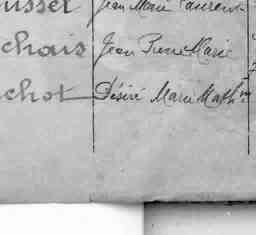 usset Jean Marie Laurent
chais Jean Pierre Marie
chot Désiré Marie Math^in